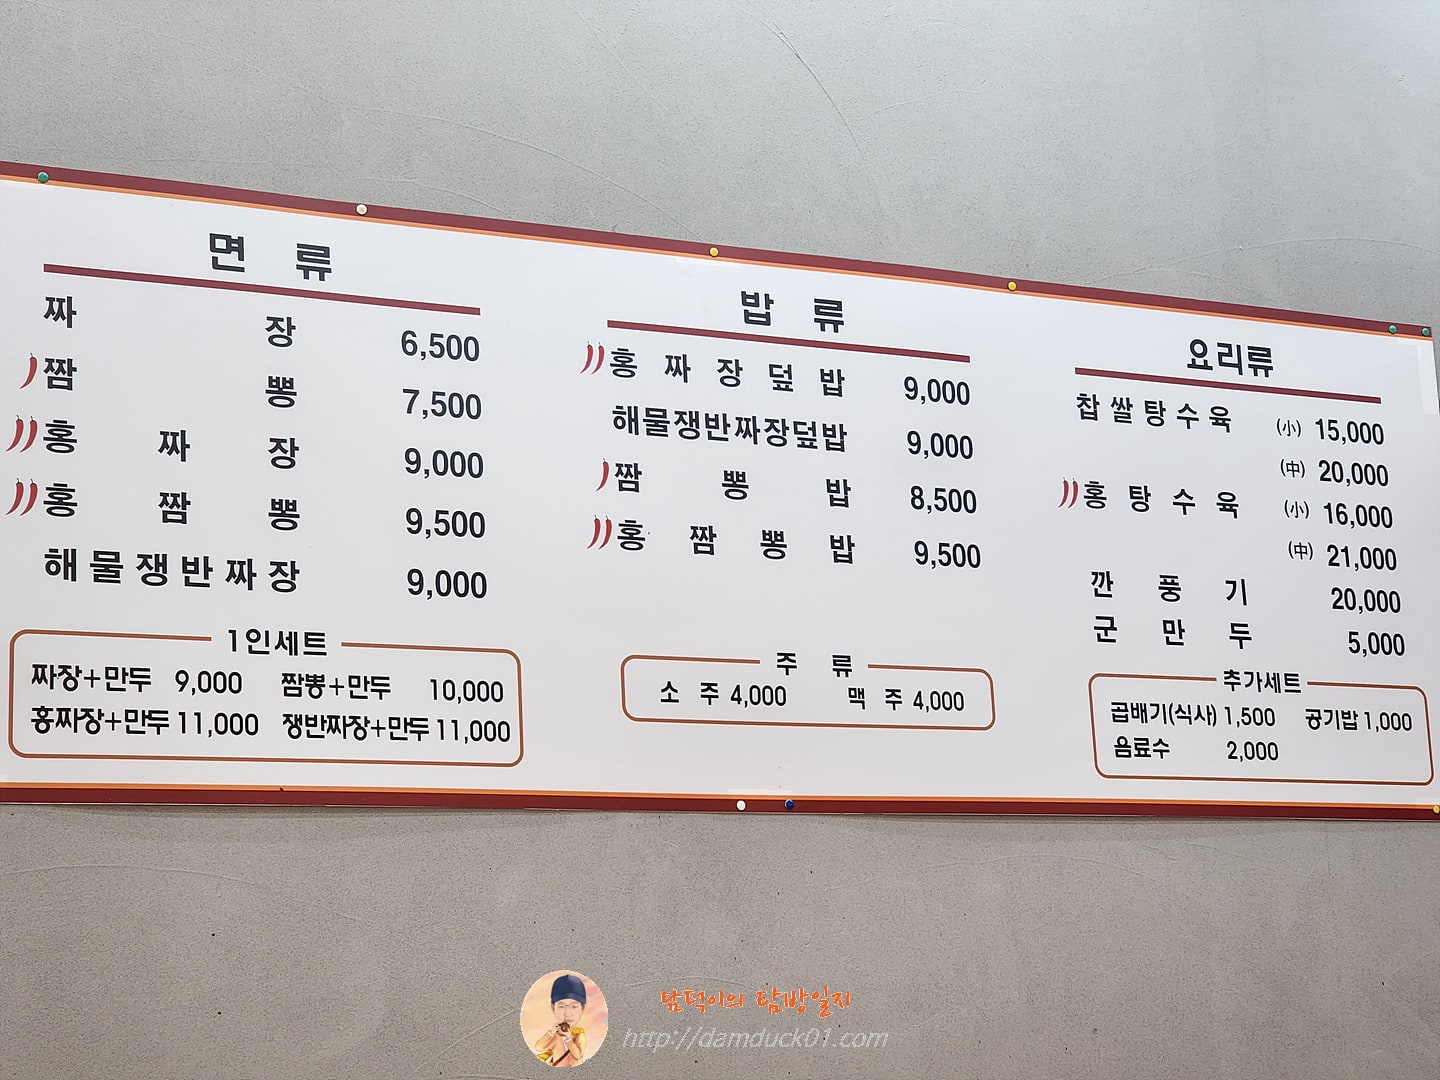 면 류
짜 장 6,500
짬 뽕 7,500
홍 짜 장 9,000
홍 짬 뽕 9,500
해물쟁반짜장 9,000
1인세트
짜장+만두 9,000 짬뽕+만두 10,000
홍짜장+만두 11,000 쟁반짜장+만두 11,000
밥 류
홍 짜 장 덮 밥 9,000
해물쟁반짜장덮밥 9,000
짬 뽕 밥 8,500
홍 짬 뽕 밥 9,500
주 류
소 주 4,000 맥 주 4,000
요리류
찹쌀탕수육 (小) 15,000
(中) 20,000
홍 탕 수 육 (小) 16,000
(中) 21,000
깐 풍 기 20,000
군 만 두 5,000
추가세트
곱배기(식사) 1,500 공기밥 1,000
음료수 2,000
담덕이의 탐방일지
http://damduck01.com